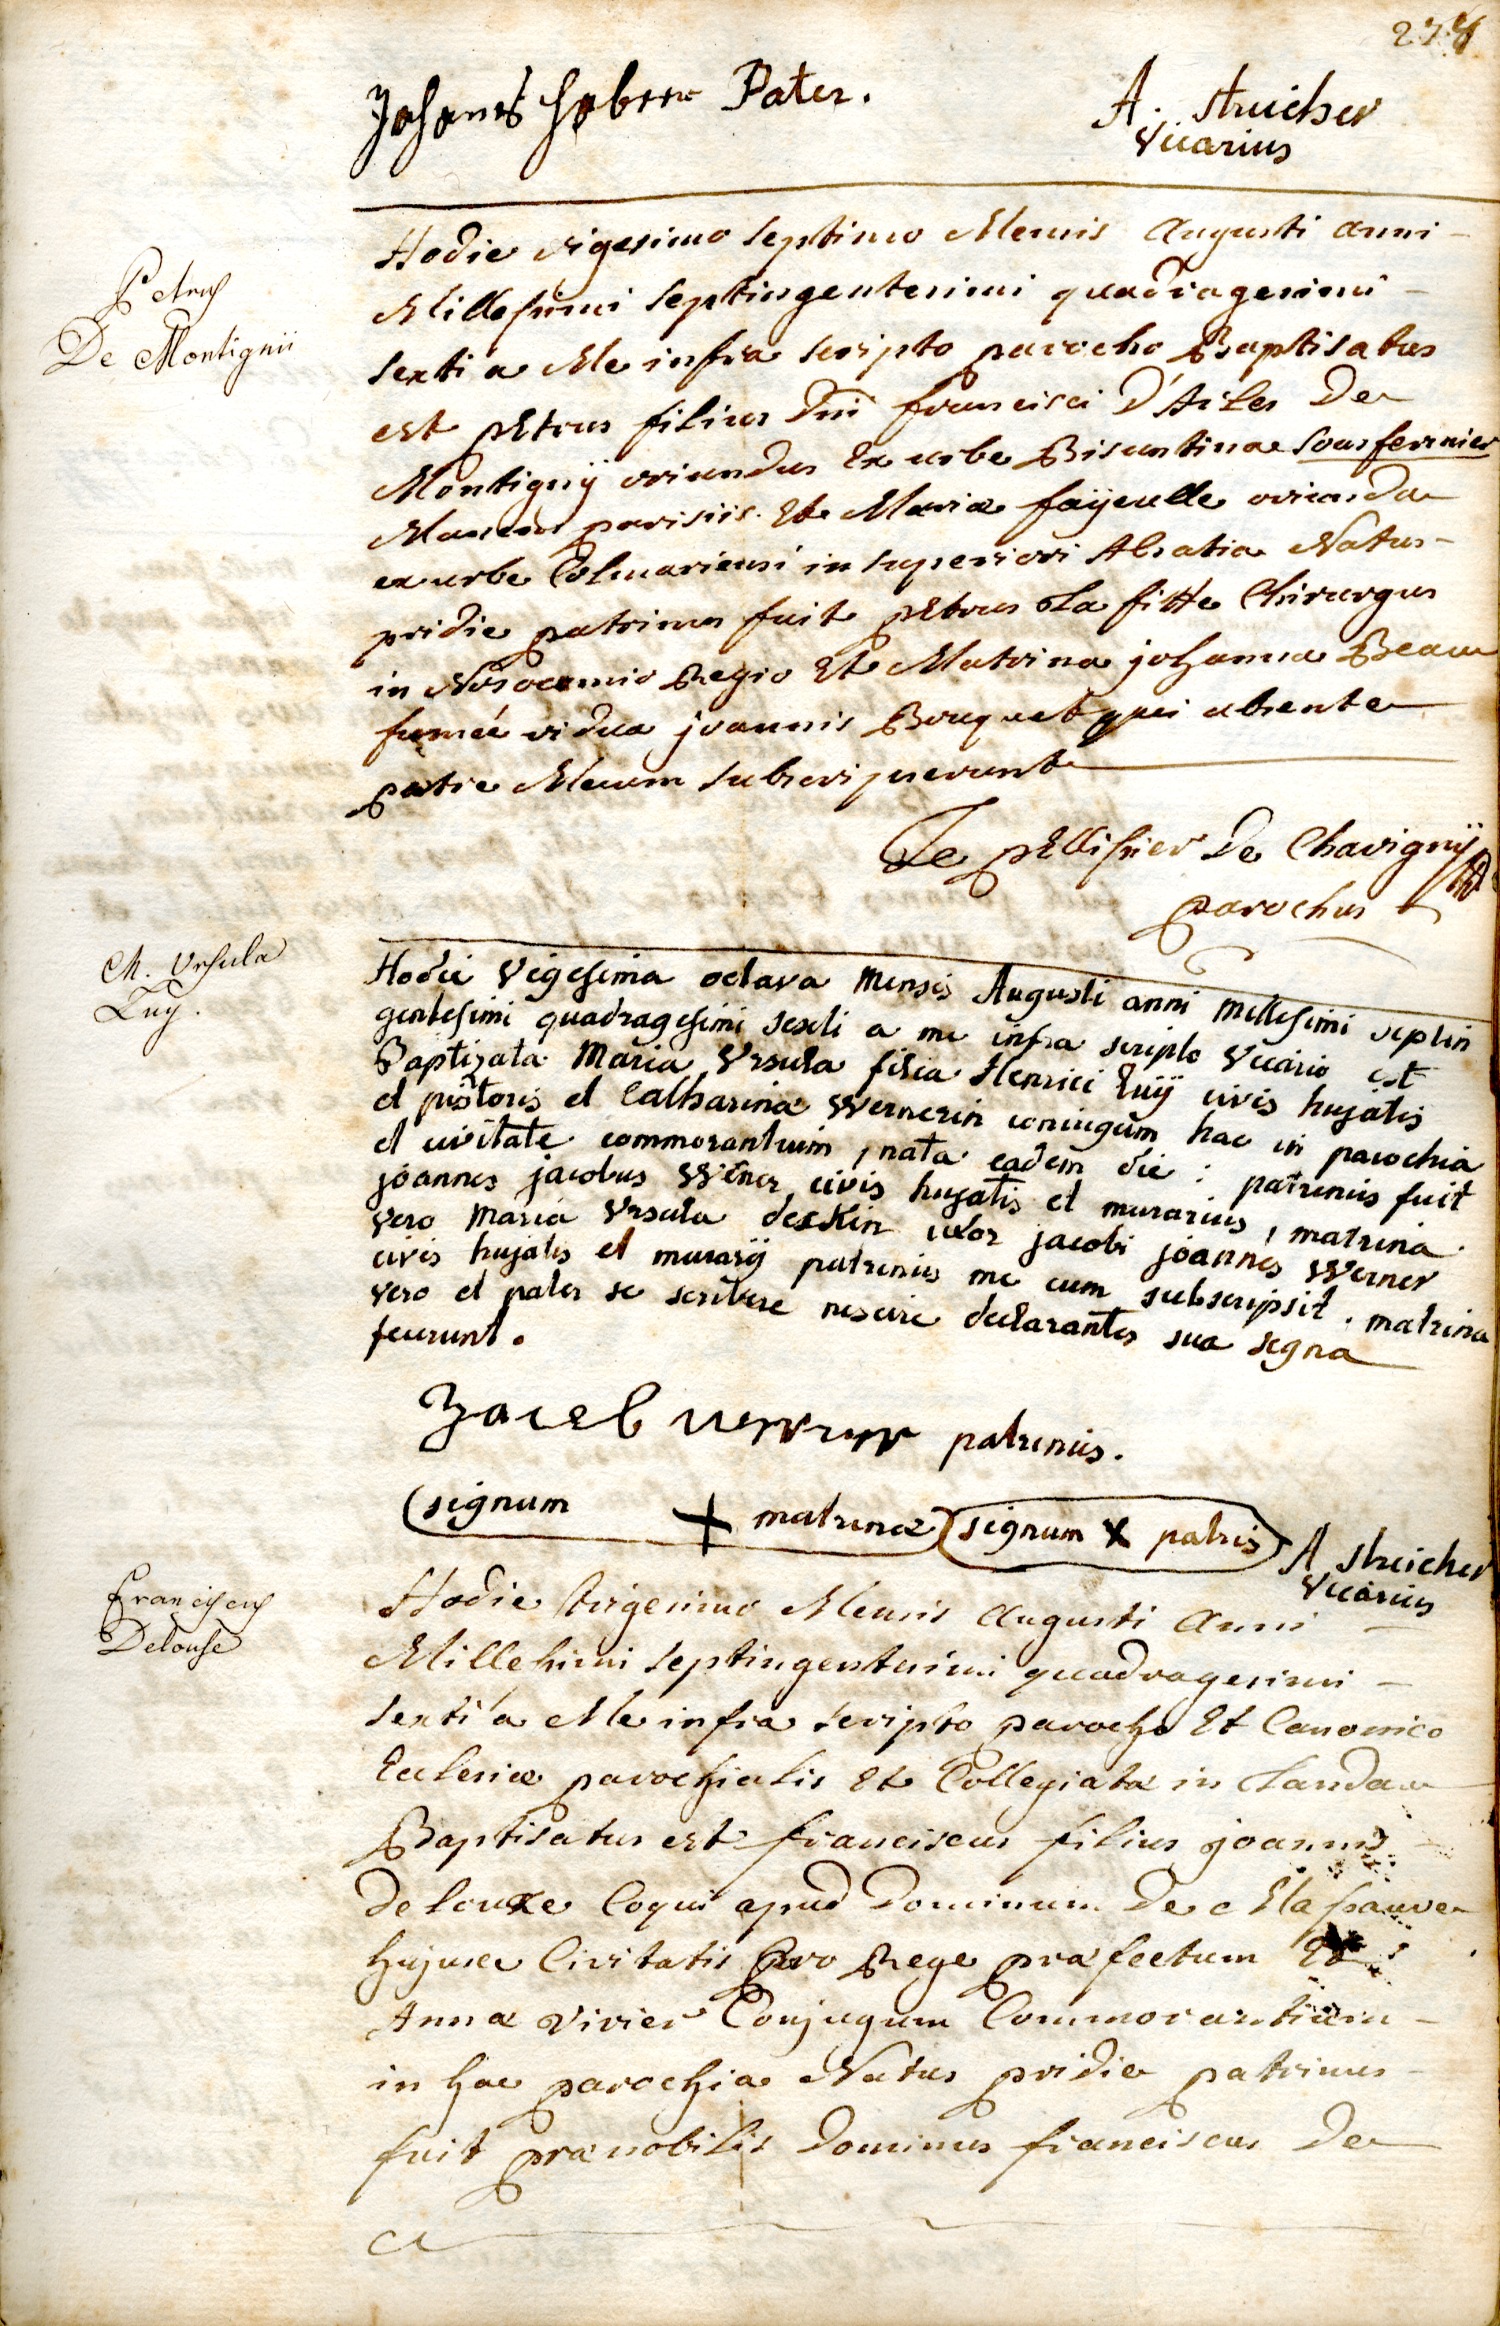 Johanes Haber Pater.
A. Streicher
Vicarius
Petrus
De Montignii
Hodie vigesimo septimo Mensis Augusti anni
Millesimi septingentesimi quadragesimi
sexti a Me infra scripto parocho Baptisatus
est petrus filius Dni francisci D'Arles De
Montignÿ oriundus Ex urbe Bisuntina sousfermier
Manens parisiis Et Mariæ faÿeulle oriunda
ex urbe Colmariensi in superiori Alsatia Natus
pridie patrinus fuit petrus La fitte Chirurgus
in Nosocomio Regio Et Matrina johanna Beau
fumée vidua joannis Bouquet qui absente
patre Mecum subscripserunt
Le pellissier De Chavignÿ
parochus
M. Ursula
Luy.
Hodie Vigesima octava Mensis Augusti anni Millesimi septin
gentesimi quadragesimi sexti a me infra scripto Vicario est
Baptizata Maria Ursula filia Henrici Luÿ civis hujatis
et pistoris et Catharina Wernerin coniugum hac in parochia
et civitate commorantium, nata eadem die: patrinus fuit
joannes jacobus Werner civis hujatis et murarius, matrina
vero Maria Ursula deckin uxor jacobi joannes Werner
civis hujatis et murarÿ patrinus me cum subscripsit. matrina
vero et pater se scribere nescire declarantes sua signa
fecerunt.
Jacob Werner patrinus.
signum + matrinæ signum x patris
A Streicher
Vicarius
Franciscus
Delouse
Hodie trigesimo Mensis Augusti Anni
Millesimi septingentesimi quadragesimi
sexti a Me infra scripto parocho Et Canonico
Ecclesiæ parochialis Et Collegiatæ in Landau
Baptisatus est franciscus filius joannis
Delouxe Coqui apud Dominum De
hujusce Civitatis pro Rege præfectum Et
Annæ vivier Conjugum Commorantium
in hac parochia Natus pridie patrinus
fuit prænobilis Dominus franciscus De